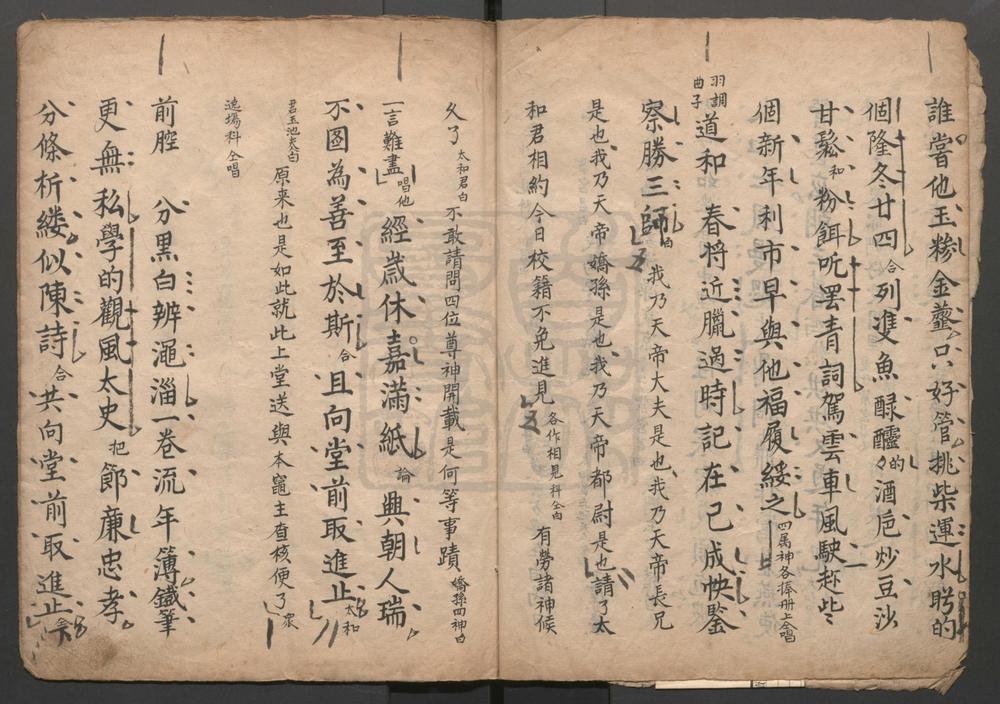 誰當他玉糝金虀只好管挑柴運水盻的
個隆冬廿四合列雙魚醁醽々的酒巵炒豆沙
甘鬆和粉餌吃罷青詞駕雲車風駛趂些
個新年利市早與他福履綏之四屬神各捧册上仝唱
羽調曲子道和 春將近臘過時記在己成怏鑒
察勝三師白 我乃天帝大夫是也我乃天帝長兄
是也我乃天帝嬌孫是也我乃天帝都尉是也請了太
和君相約今日校籍不免進見各作相見科仝白有勞諸神候
久了太和君白不敢請問四位尊神開載是何等事蹟嬌孫四神白
一言難盡唱他經歲休嘉滿紙論興朝人瑞
不圖為善至於斯合且向堂前取進止太和
君玉池夾白原来也是如此就此上堂送與本竈主查核便了衆
遶場科仝唱
前腔 分黑白辨澠淄一卷流年簿鐵筆
更無私學的觀風太史把節廉忠孝
分條析縷似陳詩合共向堂前取進止仝下